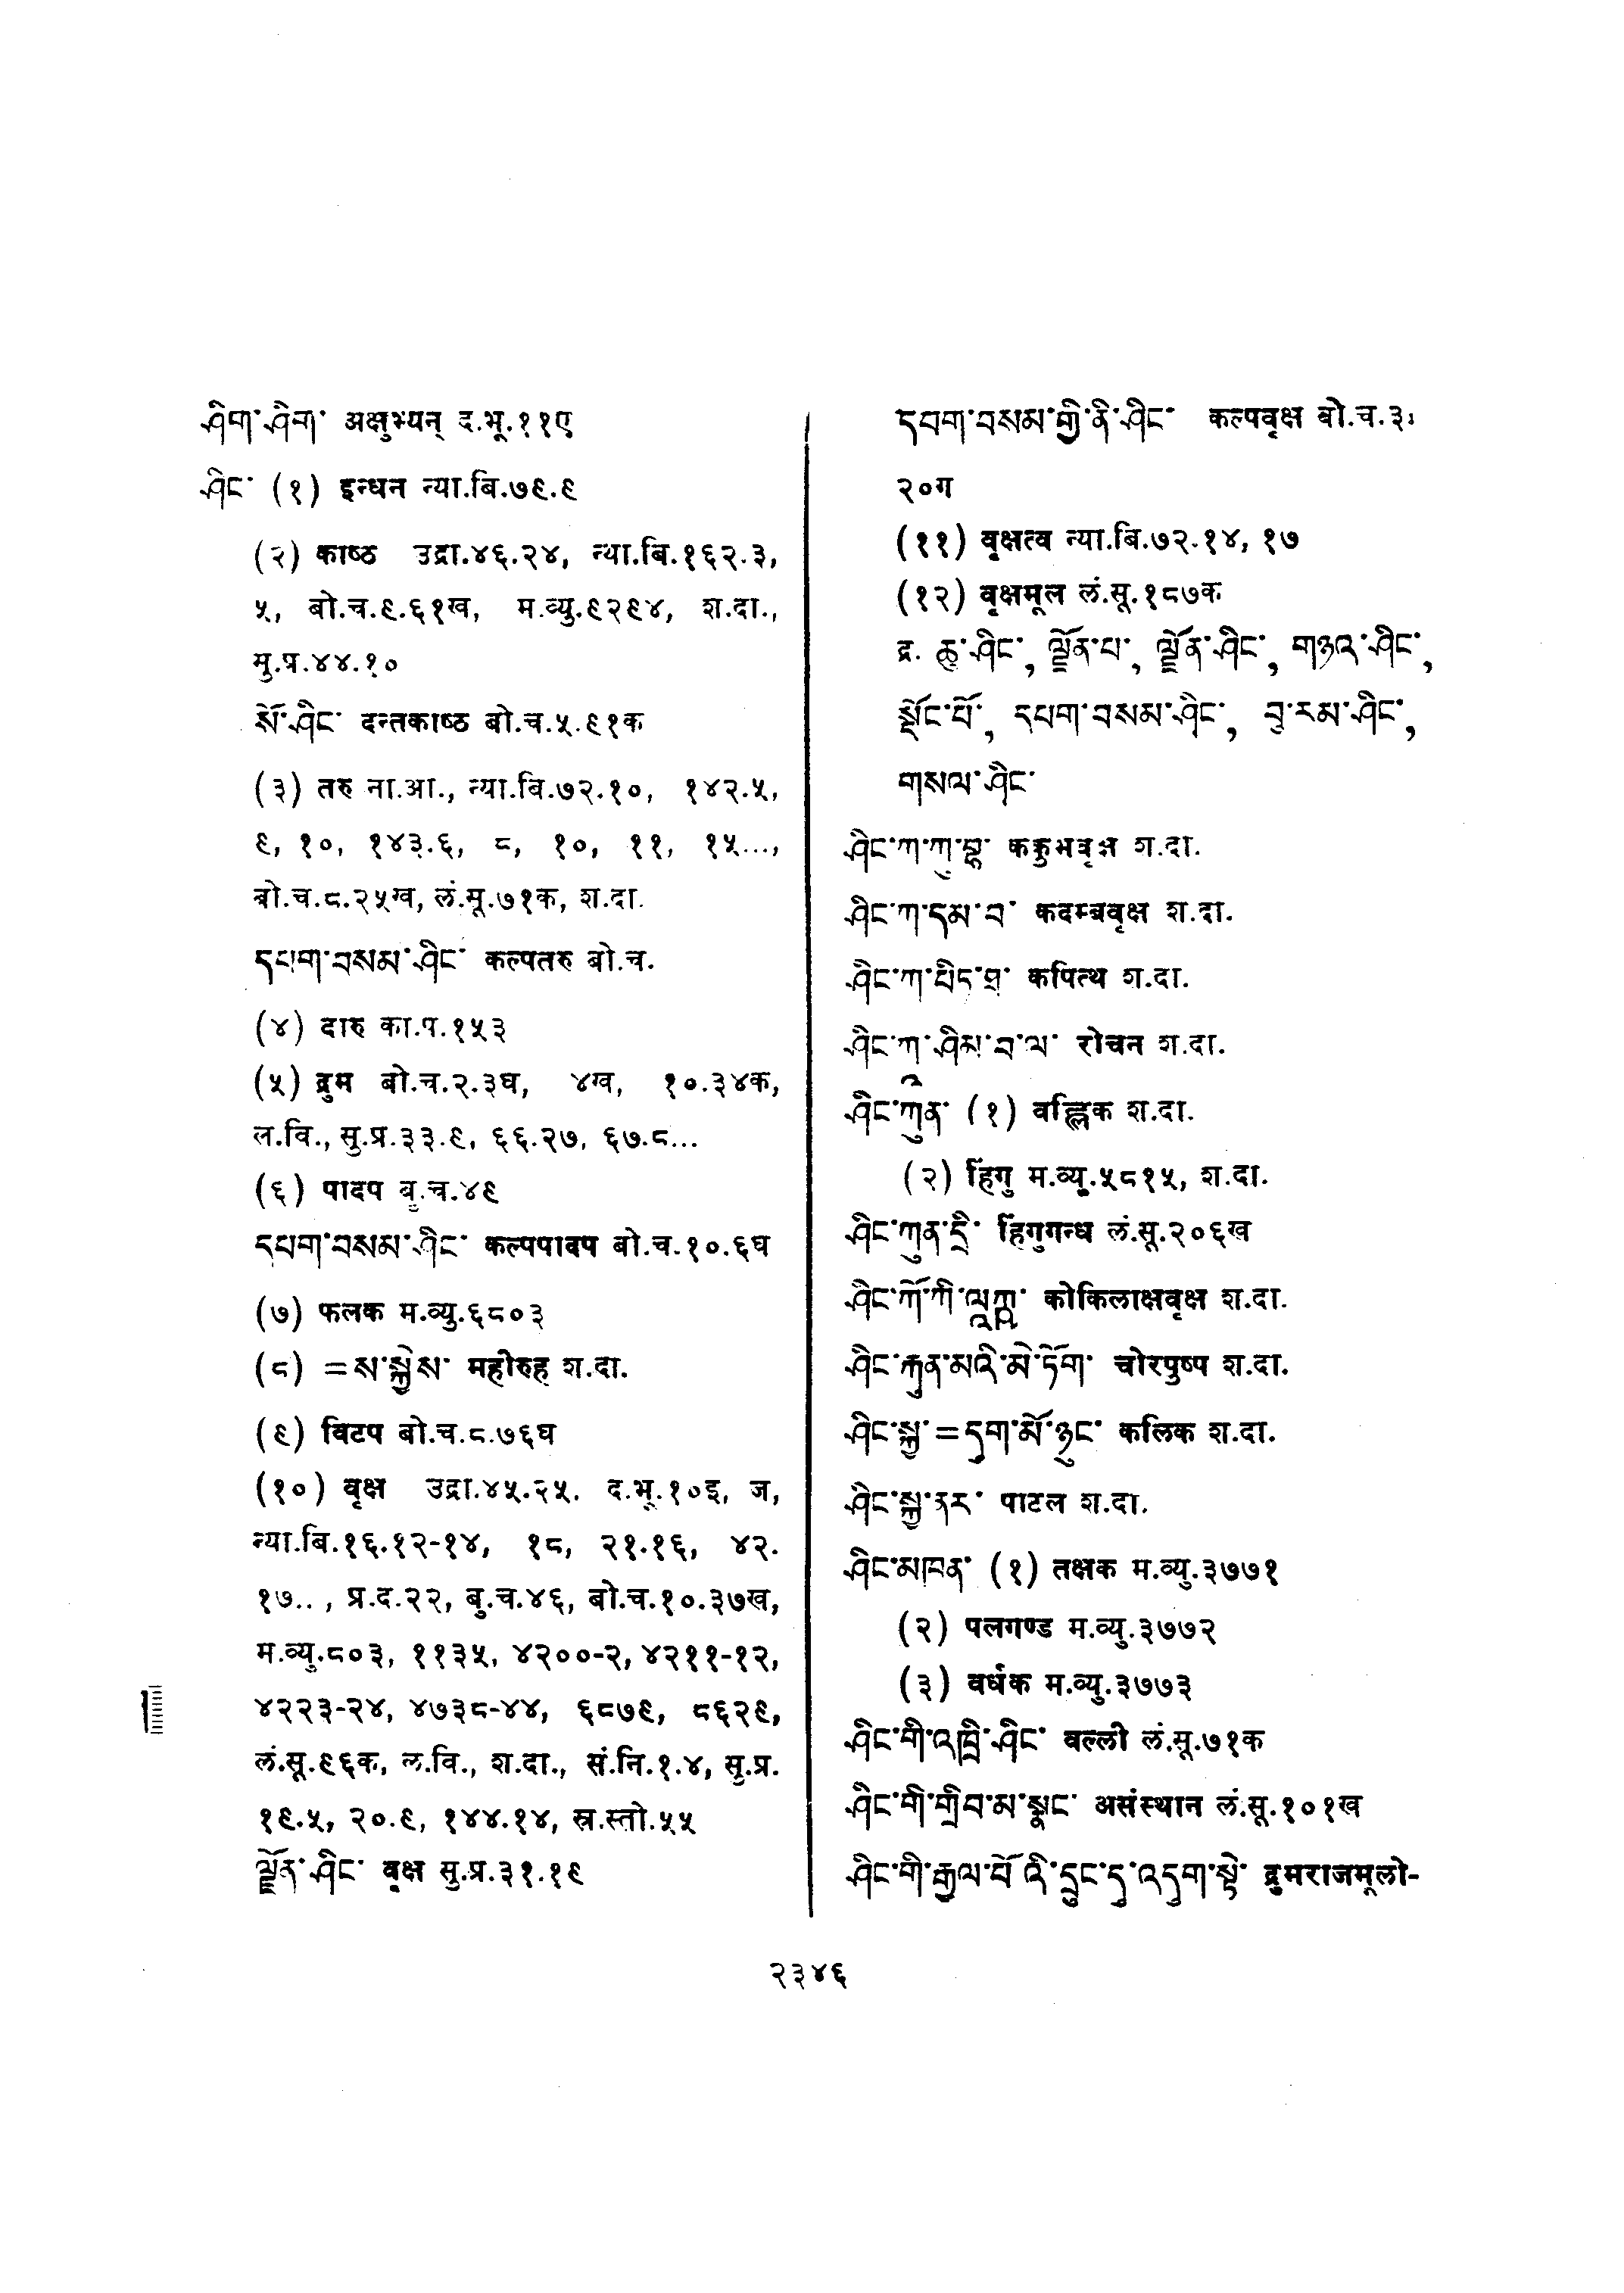 ཤིག་ཤིག་ अक्षुभ्यन् द.भू.११ए
ཤིང་ (१) इन्धन न्या.बि.७९.९
(२) काष्ठ उद्रा.४६.२४, न्या.बि.१६२.३,
५, बो.च.९.६१ख, म.व्यु.९२९४, श.दा.,
सु.प्र.४४.१०
སོ་ཤིང་ दन्तकाष्ठ बो.च.५.९१क
(३) तरु ना.आ., न्या.बि.७२.१०, १४२.५,
९, १०, १४३.६, ८, १०, ११, १५...,
बो.च.८.२५ख, लं.सू.७१क, श.दा.
དཔག་བསམ་ཤིང་ कल्पतरु बो.च.
(४) दारु का.प.१५३
(५) द्रुम बो.च.२.३घ, ४ख, १०.३४क,
ल.वि., सु.प्र.३३.९, ६६.२७, ६७.८...
(६) पादप बु.च.४९
དཔག་བསམ་ཤིང་ कल्पपादप बो.च.१०.६घ
(७) फलक म.व्यु.६८०३
(८) =ས་སྐྱེས་ महीरुह श.दा.
(९) विटप बो.च.८.७६घ
(१०) वृक्ष उद्रा.४५.२५. द.भू.१०इ, ज,
न्या.बि.१६.१२-१४, १८, २१.१६, ४२.
१७.., प्र.द.२२, बु.च.४६, बो.च.१०.३७ख,
म.व्यु.८०३, ११३५, ४२००-२, ४२११-१२,
४२२३-२४, ४७३८-४४, ६८७९, ८६२९,
लं.सू.९६क, ल.वि., श.दा., सं.नि.१.४, सु.प्र.
१९.५, २०.९, १४४.१४, स्र.स्तो.५५
ལྗོན་ཤིང་ वृक्ष सु.प्र.३१.१९
དཔག་བསམ་གྱི་ནི་ཤིང་ कल्पवृक्ष बो.च.३.
२०ग
(११) वृक्षत्व न्या.बि.७२.१४, १७
(१२) वृक्षमूल लं.सू.१८७क
द्र. ཆུ་ཤིང་, ལྗོན་པ་, ལྗོན་ཤིང་, གཉའ་ཤིང་,
སྡོང་པོ་, དཔག་བསམ་ཤིང་, བུ་རམ་ཤིང་,
གསལ་ཤིང་
ཤིང་ཀ་ཀུ་བྷ་ ककुभवृक्ष श.दा.
ཤིང་ཀ་དམ་བ་ कदम्बवृक्ष श.दा.
ཤིང་ཀ་པིད་ཐ་ कपित्थ श.दा.
ཤིང་ཀ་ཤིམ་བ་ལ་ रोचन श.दा.
ཤིང་ཀུན་ (१) वह्लिक श.दा.
(२) हिंगु म.व्यु.५८१५, श.दा.
ཤིང་ཀུན་དྲི་ हिंगुगन्ध लं.सू.२०६ख
ཤིང་ཀོ་ཀི་ལཱཀྵ་ कोकिलाक्षवृक्ष श.दा.
ཤིང་རྐུན་མའི་མེ་ཏོག་ चोरपुष्प श.दा.
ཤིང་སྐྱ་=དུག་མོ་ཉུང་ कलिक श.दा.
ཤིང་སྐྱ་ནར་ पाटल श.दा.
ཤིང་མཁན་ (१) तक्षक म.व्यु.३७७१
(२) पलगण्ड म.व्यु.३७७२
(३) वर्धक म.व्यु.३७७३
ཤིང་གི་འཁྲི་ཤིང་ वल्ली लं.सू.७१क
ཤིང་གི་གྲིབ་མ་སྣང་ असंस्थान लं.सू.१०१ख
ཤིང་གི་རྒྱལ་པོ་འི་དྲུང་དུ་འདུག་སྟེ་ द्रुमराजमूलो-
२३४६